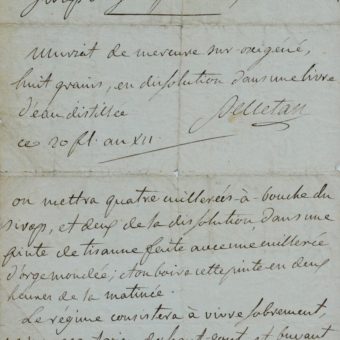 Muriat de mercure sur oxigéné,
huit grains, en dissolution dans une livre
d'eau distillée
Pelletan
ce 20 fl. an XII.
on mettra quatre cuillerées à bouche du
sirop, et deux de la dissolution, dans une
pinte de tisanne faite avec une cuillerée
d'orge mondée; et on boira cette pinte en deux
heures de la matinée.
Le régime consistera à vivre sobrement,
de haut gout, et buvant